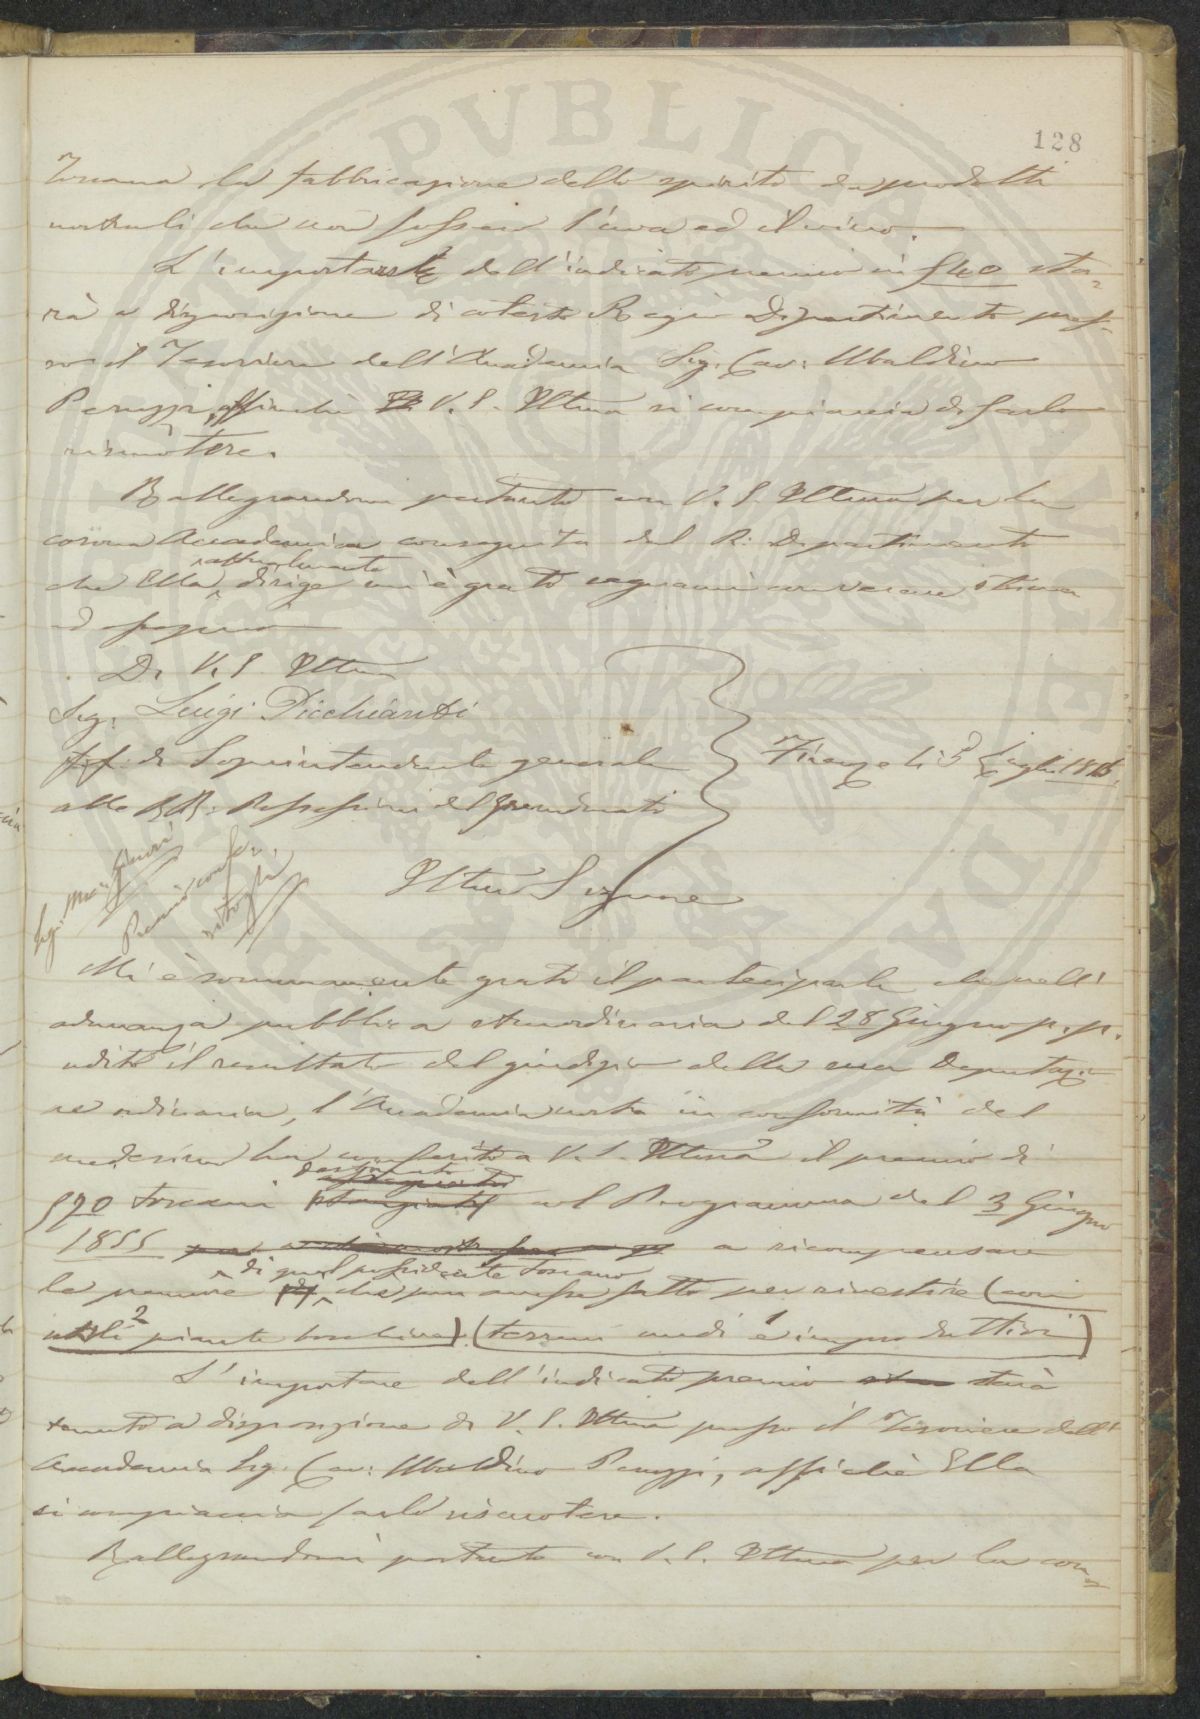 128
Toscana la fabbricazione dello spirito da prodotti
nostrali che non fossero l'uva ed il vino.
L'importare dell'indicato premio in £ 40 sta-
rà a disposizione di cotesto Regio Dipartimento pres-
so il Tesoriere dell'Accademia Sig. Cav: Ubaldino
Peruzzi, affinchè V. S. Illma si compiaccia di farlo
riscuotere.
Rallegrandomi pertanto con V. S. Illma per la
corona Accademica conseguita dal R: Dipartimento
che Ella dirige mi è grato segnarmi con verace stima
Di V. S. Illma
Sig. Luigi Picchianti
ff. di Soprintendente generale
alle RR: Possessioni del Granducato
Firenze li 3 Luglio 1856
Sig. Ginori
Premio
Illmo Signore
Mi è sommamente grato il parteciparle che nell'
adunanza pubblica straordinaria del 28 Giugno p. p.
udito il resultato del giudizio della sua Deputazio-
ne ordinaria, l'Accademia nostra in conformità del
medesimo ha conferito a V. S. Illma il premio di
£ 20 toscani destinato col Programma del 3 Giugno
1855 a ricompensare
le premure di quel possidente toscano che più avesse fatto per rivestire (con
utili 2 piante boschive) (terreni nudi 1 e improduttivi)
L'importare dell'indicato premio sarà
tenuto a disposizione di V. S. Illma presso il Tesoriere dell'
Accademia Sig. Cav: Ubaldino Peruzzi, affinchè Ella
si compiaccia farlo riscuotere.
Rallegrandomi pertanto con V. S. Illma per la coro-